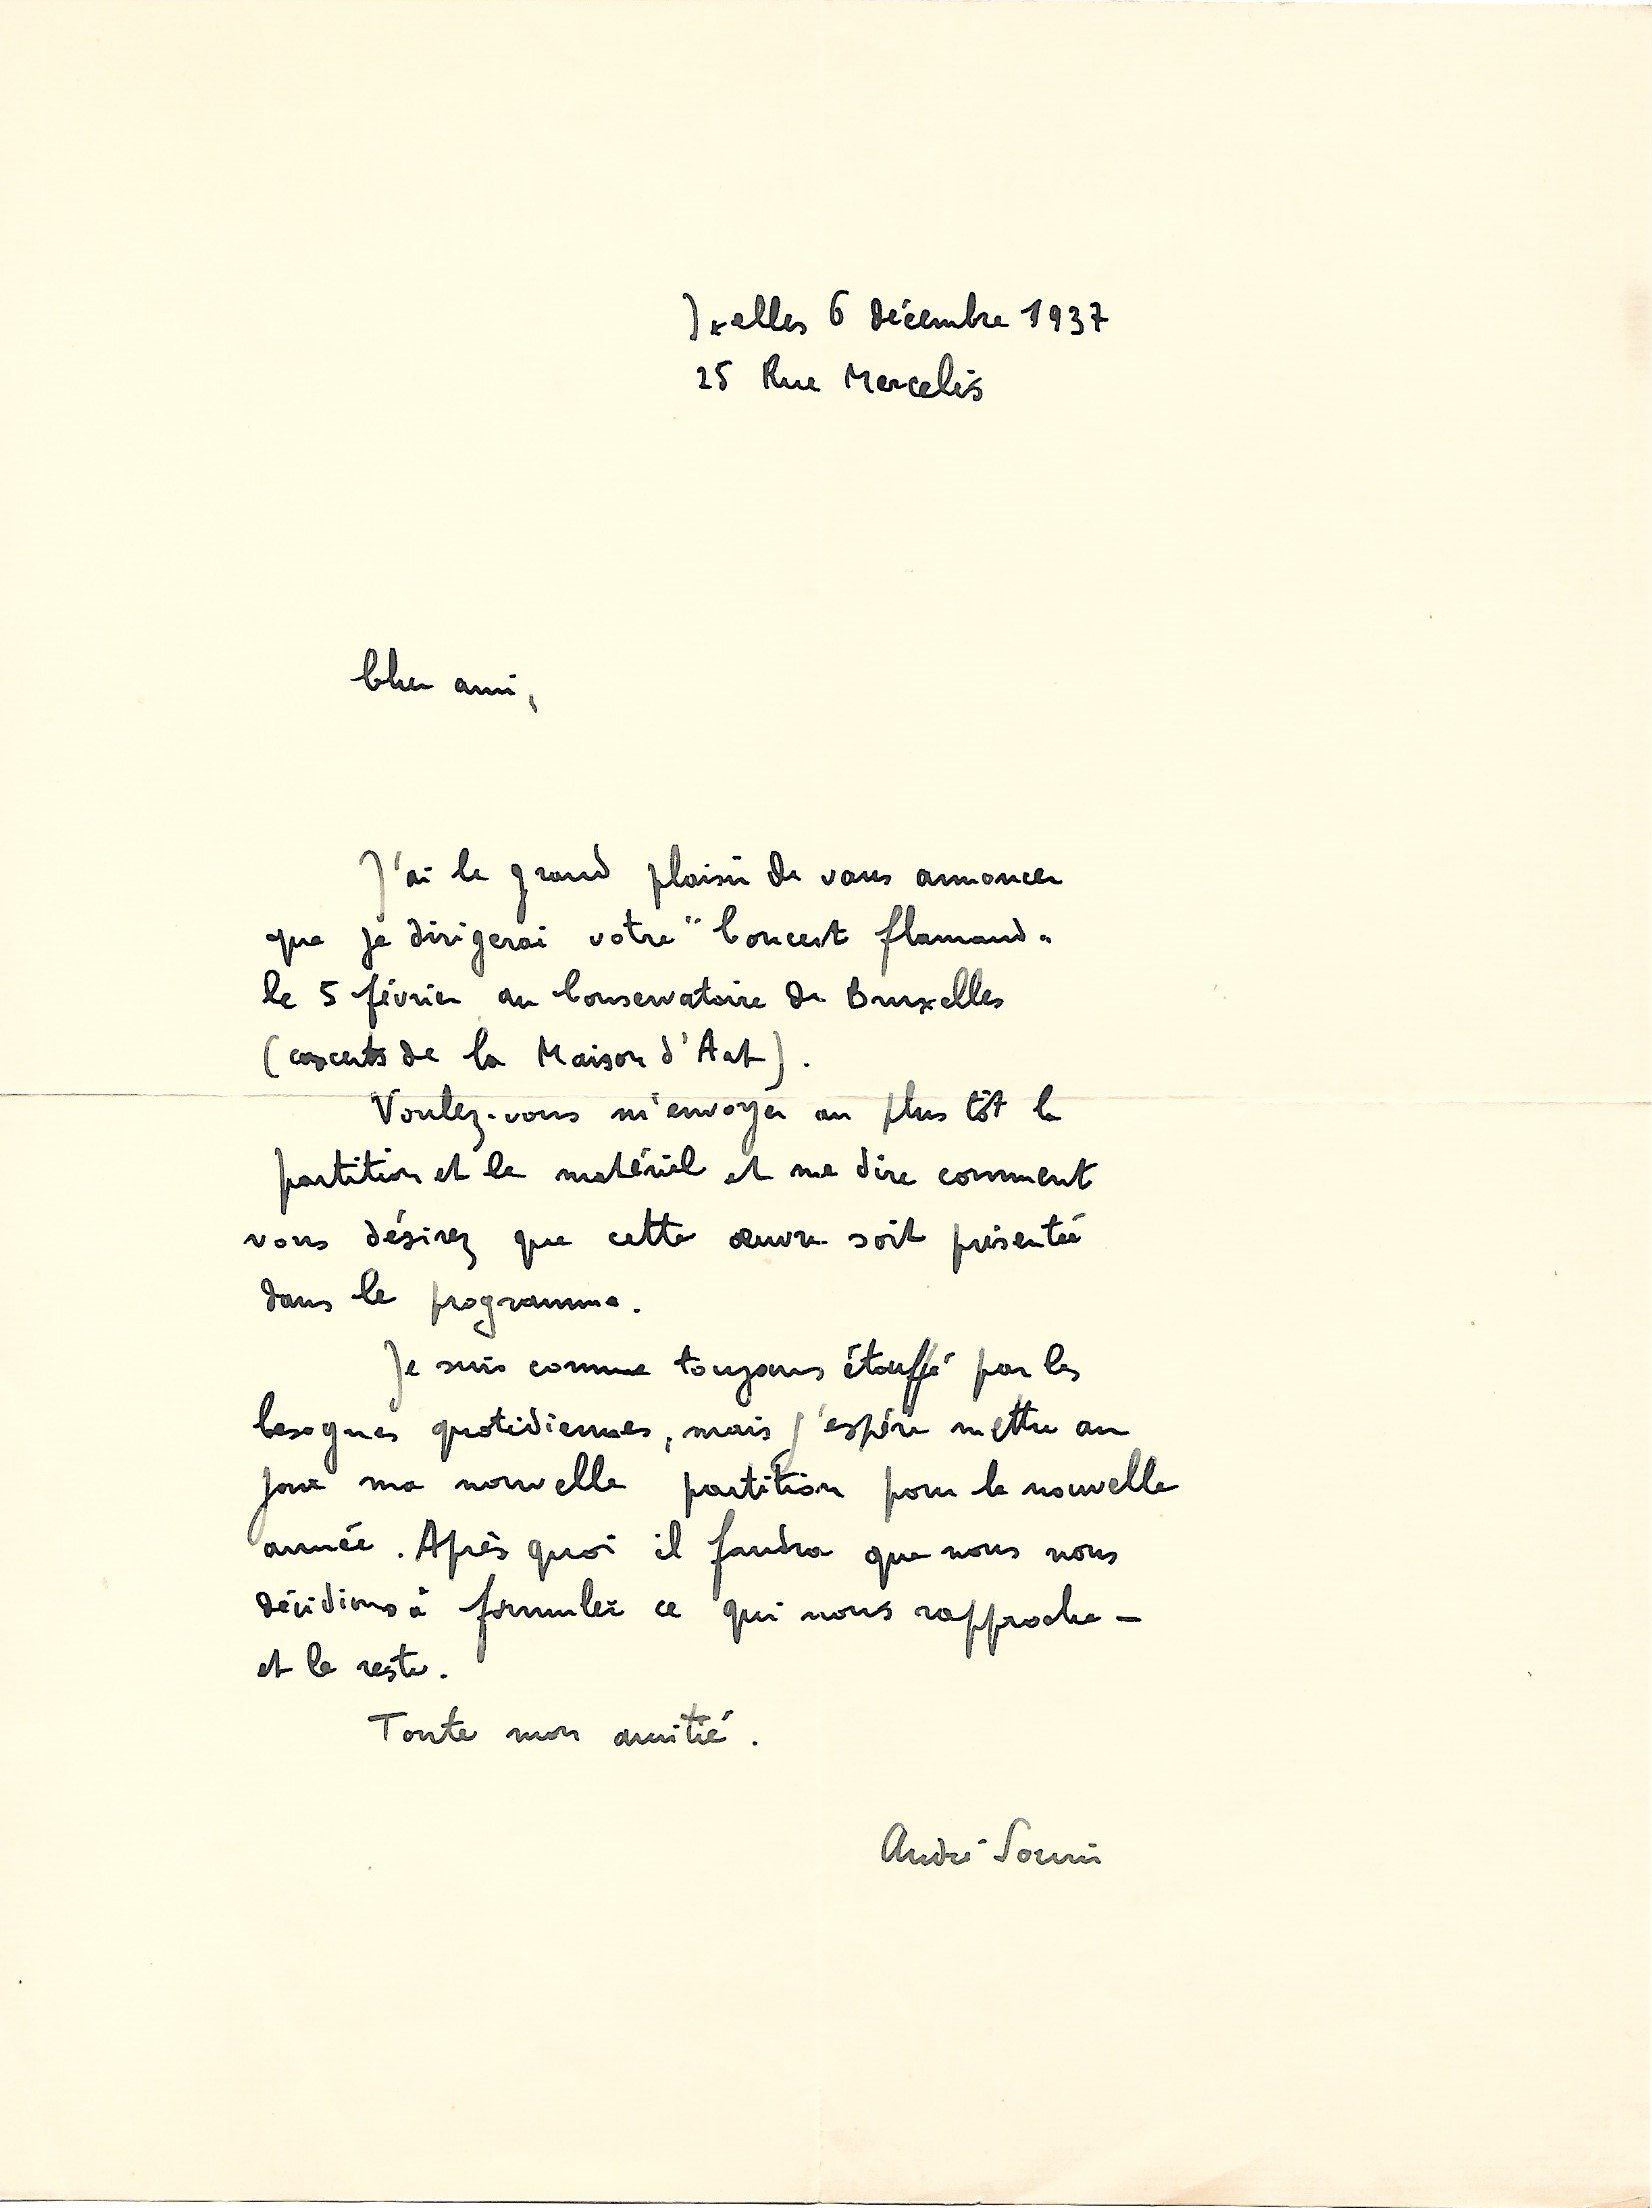 Ixelles 6 décembre 1937
25 Rue Mercelis
Cher ami,
J'ai le grand plaisir de vous annoncer
que je dirigerai votre "Concert flamand"
le 5 février au Conservatoire de Bruxelles
(concerts de la Maison d'Art).
Voulez-vous m'envoyer au plus tôt la
partition et le matériel et me dire comment
vous désirez que cette œuvre soit présentée
dans le programme.
Je suis comme toujours étouffé par les
besognes quotidiennes, mais j'espère mettre au
jour ma nouvelle partition pour la nouvelle
année. Après quoi il faudra que nous nous
décidions à formuler ce qui nous rapproche —
et le reste.
Toute mon amitié.
André Souris